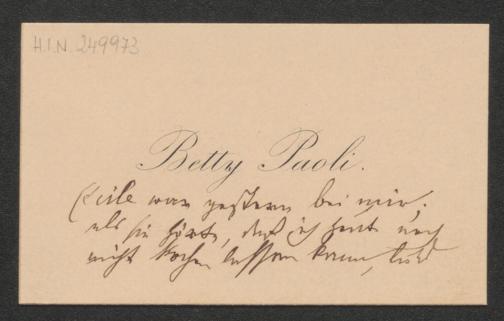 H.I.N. 249973
Betty Paoli.
Cecile war gestern bei mir.
als sie hörte, daß ich heute noch
nicht kochen lassen kann,